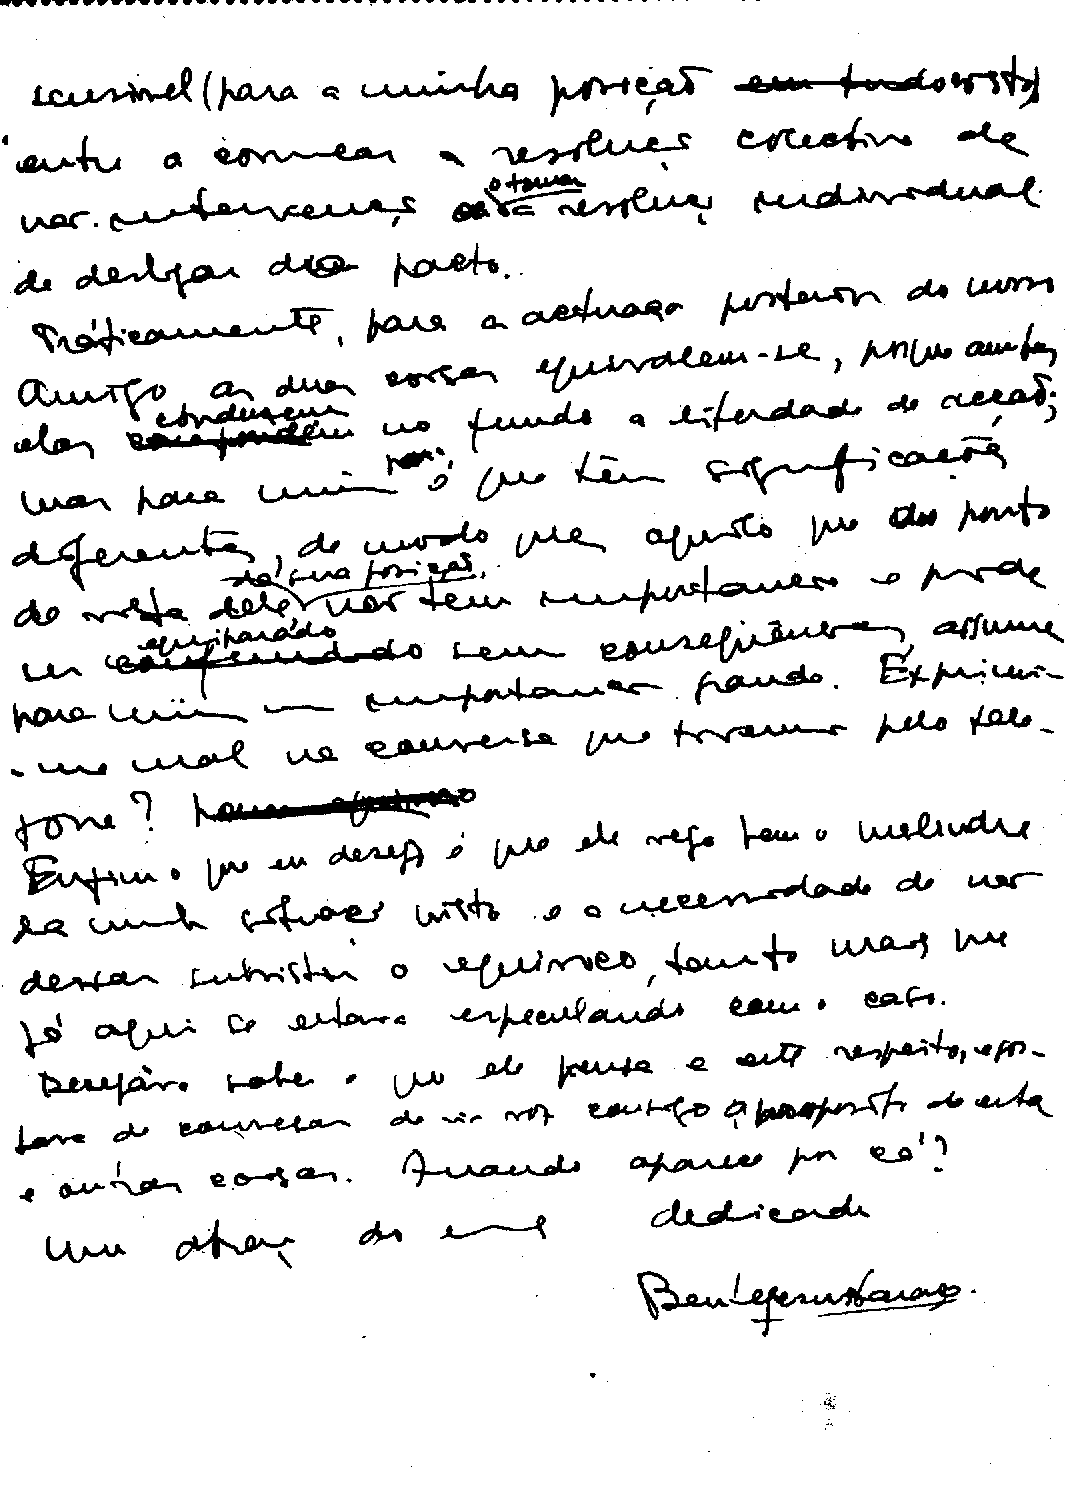 (para a minha posição em tudo isto)
entre o começar a resolução colectiva de
não intervenção o tomar a resolução individual
de desligar do pacto.
Práticamente, para a actuação posterior do nosso
Amigo as duas coisas equivalem-se, porque ambas
elas conduzem no fundo a liberdade de acção;
mas para mim não; é que têm significações
diferentes, de modo que aquilo que do ponto
de vista da sua posição, não tem importancia e pode
ser equiparado sem consequências, assume
para mim uma importancia grande. Exprimi-
-me mal na conversa que tivemos pelo tele-
fone?
Enfim o que eu desejo é que ele veja bem o melindre
da minha situação nisto e a necessidade de não
deixar subsistir o equívoco, tanto mais que
já aqui se estava especulando com o caso.
Desejava saber o que ele pensa a este respeito, e gos-
tava de conversar de viva voz comtigo a proposito de esta
e outras coisas. Quando aparece por cá?
Um abraço do seu dedicado
Bento de Jesus Caraça.